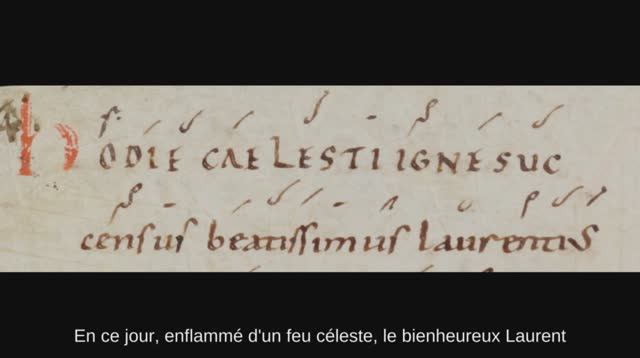 hODIE CAELESTI IGNE SUC
census beatissimus laurentius
En ce jour, enflammé d'un feu céleste, le bienheureux Laurent